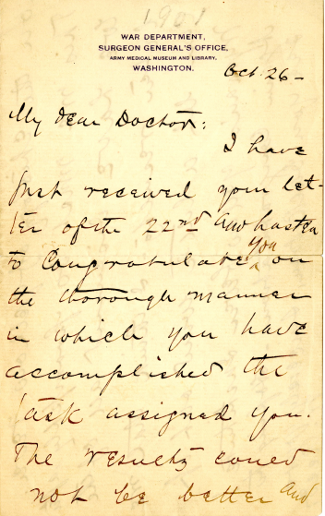 1901
WAR DEPARTMENT,
SURGEON GENERAL'S OFFICE,
ARMY MEDICAL MUSEUM AND LIBRARY,
WASHINGTON.
Oct. 26-
My dear Doctor:
I have
just received your let-
ter of the 22nd and hasten
to Congratulate you on
the thorough manner
in which you have
accomplished the
task assigned you.
The results could
not be better and